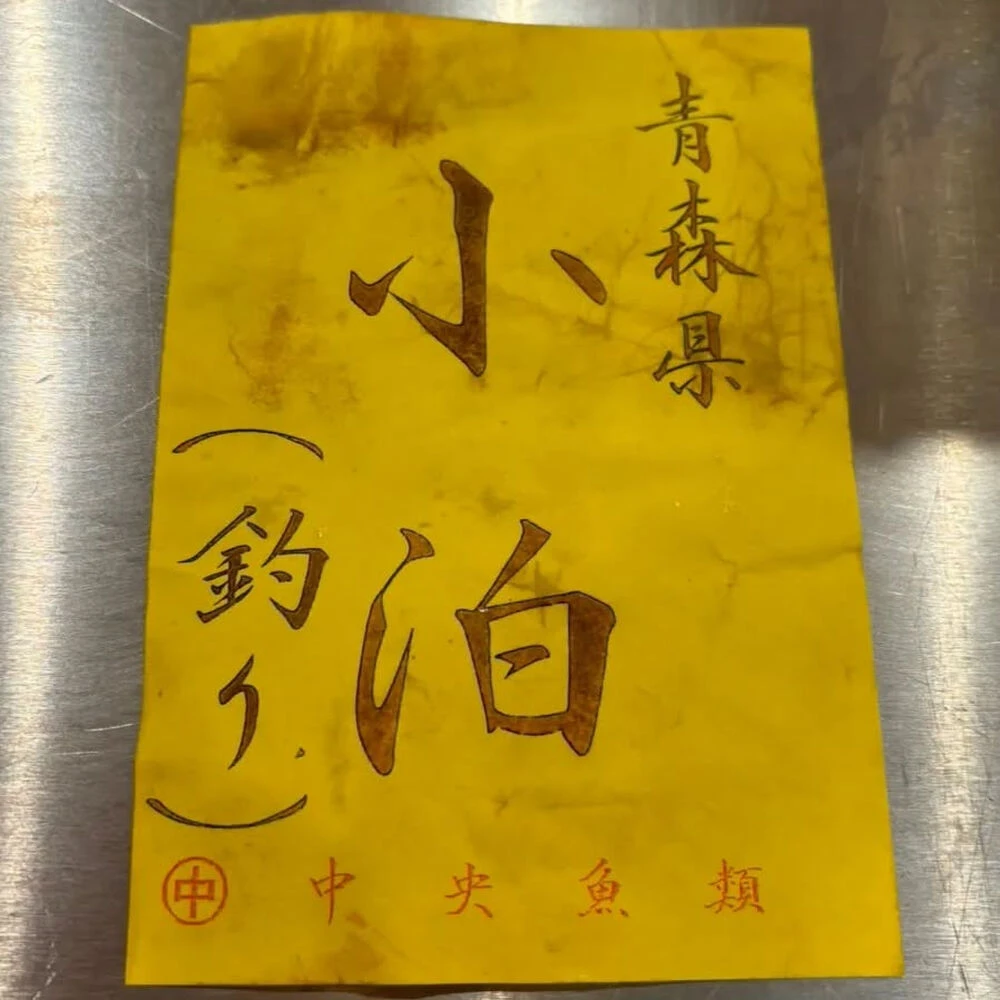 青森県
小泊
（釣り）
㊥ 中央魚類